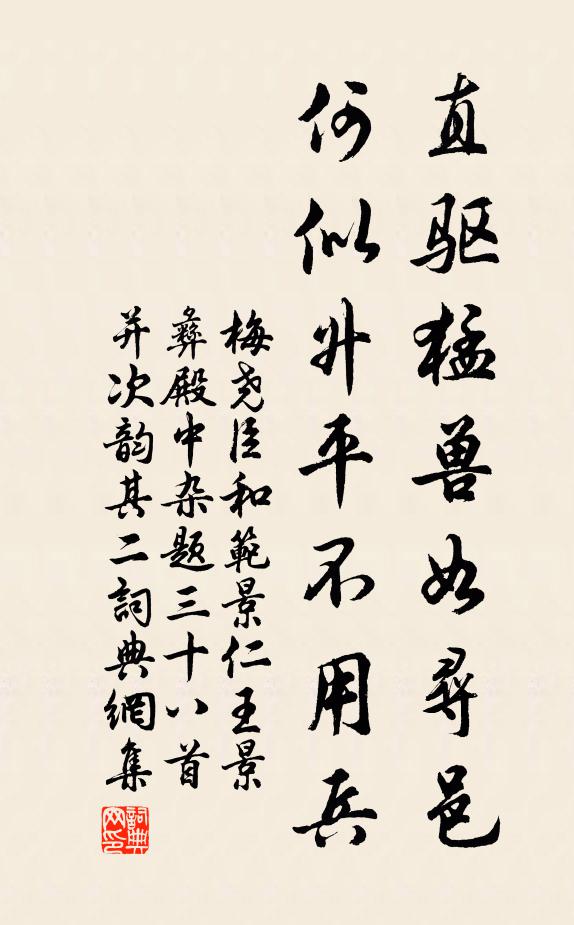 直驱猛兽如寻邑
何似升平不用兵
梅尧臣和範景仁王景
彝殿中杂题三十八首
并次韵其二詞典網集
詞典
网印